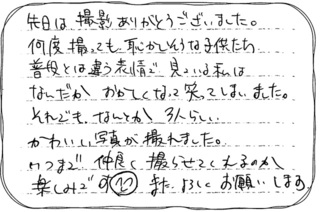 先日は 撮影ありがとうございました。
何度撮っても 恥かしそうな子供たち
普段とは違う表情で 見ている私は
なんだか おかしくなって笑ってしまいました。
それでも、なんとか 3人らしい
かわいい写真が撮れました。
いつまで 仲良く 撮らせてくれるのか
楽しみです また よろしく お願いします